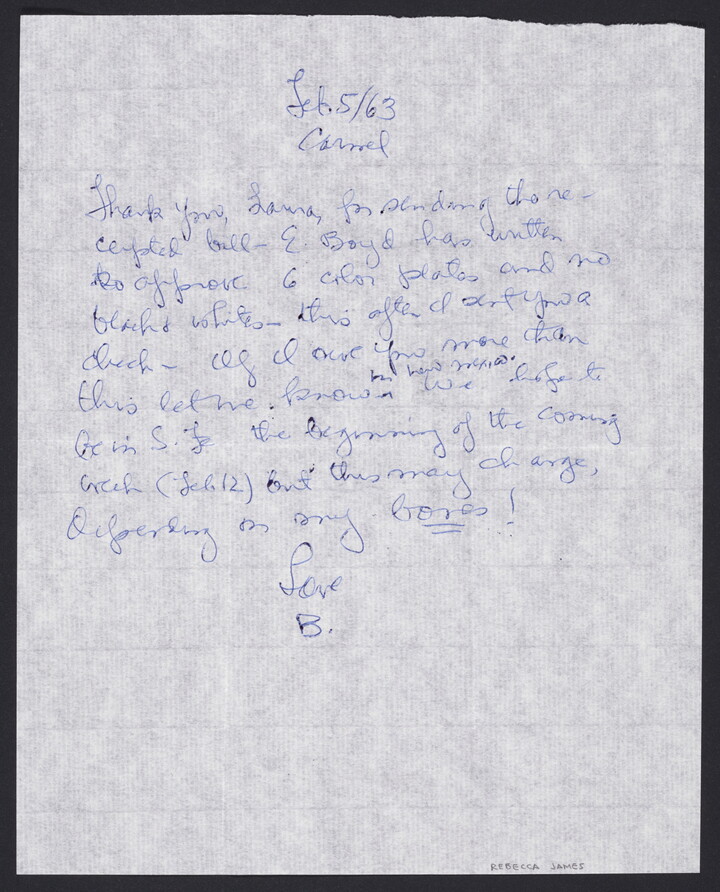 Feb. 5/63
Carmel
Thank you, Laura, for sending the re-
ceipted bill - E. Boyd has written
to approve 6 color plates and no
black & whites - this after I sent you a
check - If I owe you more than
in New Mexico.
this let me know We hope to
be in S. Fe the beginning of the coming
week (Feb 12) but this may change,
depending on my bones!
Love
B.
REBECCA JAMES